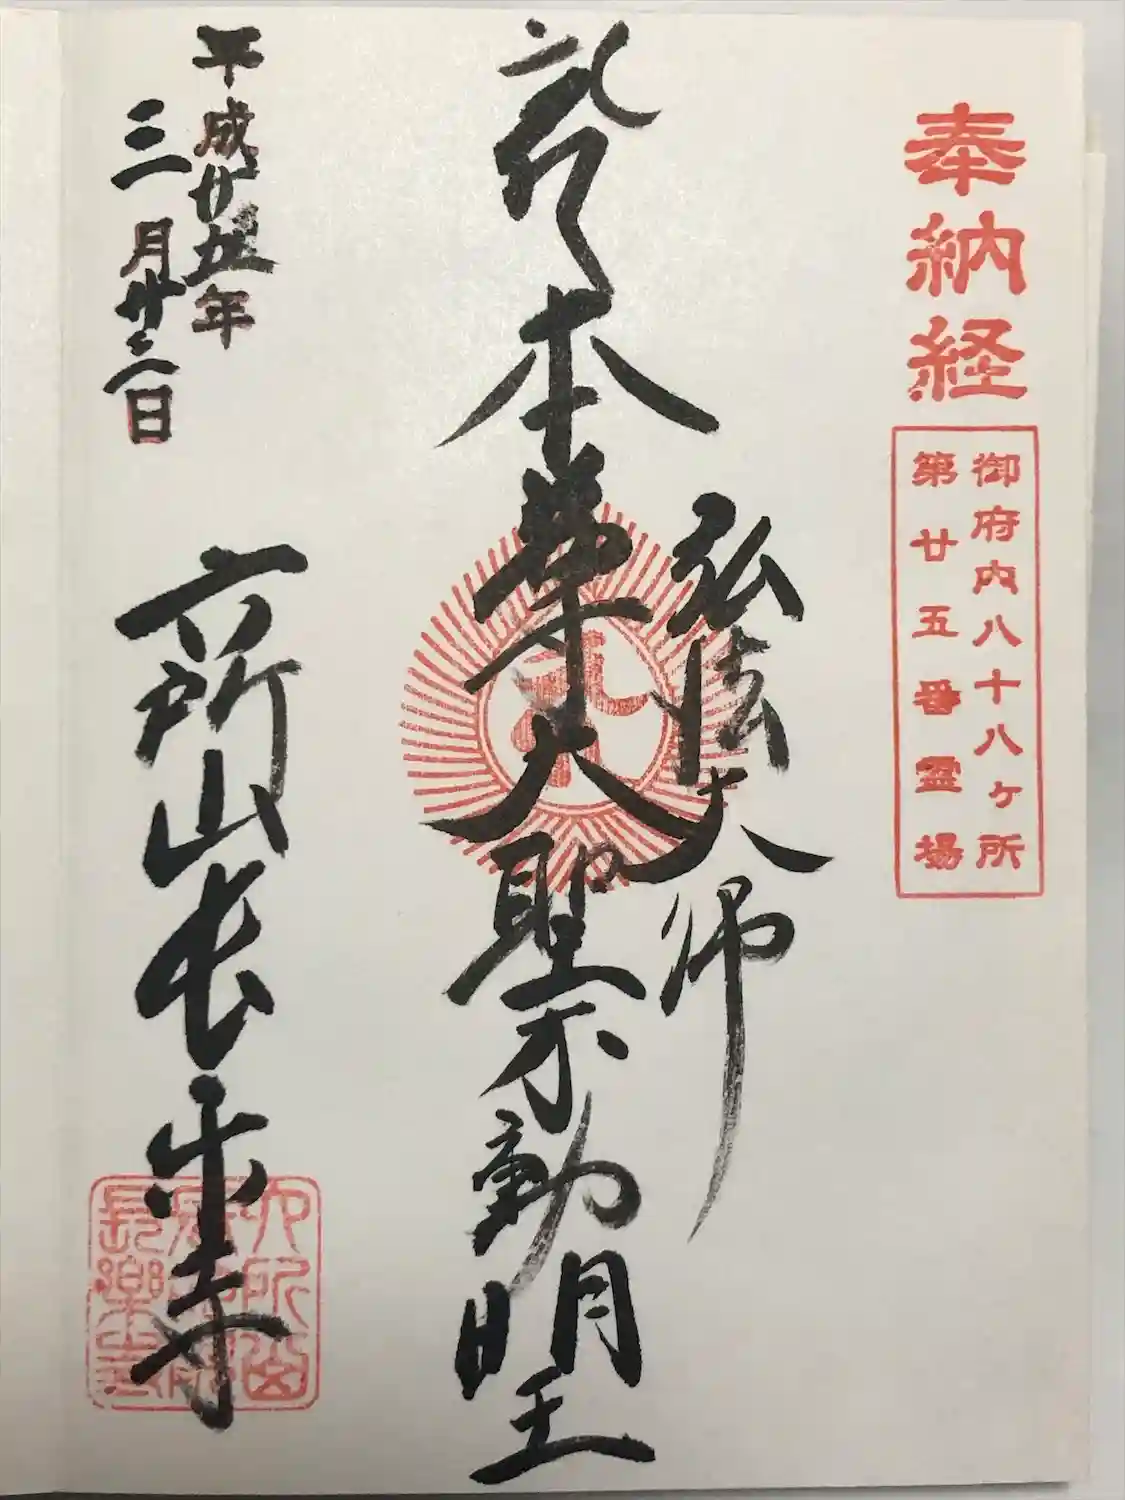 奉納経
御府内八十八ヶ所
第廿五番霊場
弘法大師
本尊大聖不動明王
平成廿五年
三月廿三日
六所山長楽寺